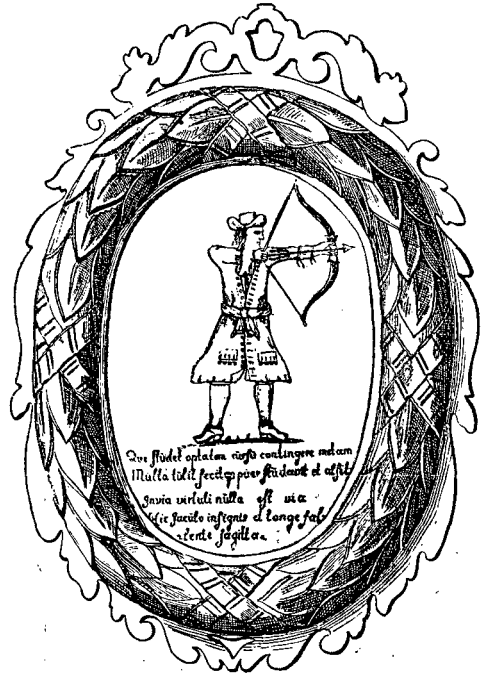 Qui studet optatam cursu contingere metam
Multa tulit fecitqz puer sudavit et alsit
Invia virtuti nulla est via
Hic jaculo insignis et longe fal
lente sagitta.